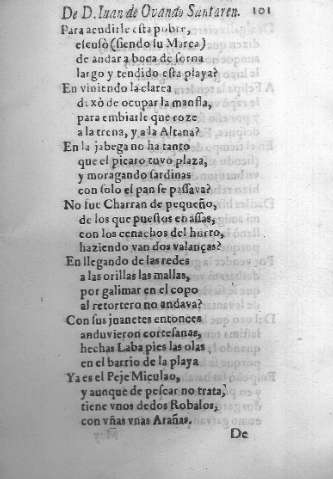 De D. Iuan de Ovando Santaren. 101
Para acudirle esta pobre,
escusò (siendo su Marca)
de andar a boca de sorna
largo y tendido esta playa?
En viniendo la clarea
dexò de ocupar la mansla,
para embiarle que roze
a la trena, y a la Altana?
En la jabega no ha tanto
que el picaro tuvo plaza,
y moragando sardinas
con solo el pan se passava?
No fue Charran de pequeño,
de los que puestos en assas,
con los cenachos del hurro,
haziendo van dos valanças?
En llegando de las redes
a las orillas las mallas,
por galimar en el copo
al retortero no andava?
Con sus juanetes entonces
anduvieron cortesanas,
hechas Laba pies las olas
en el barrio de la playa
Ya es el Peje Miculao,
y aunque de pescar no trata,
tiene vnos dedos Robalos,
con vñas vnas Arañas.
De